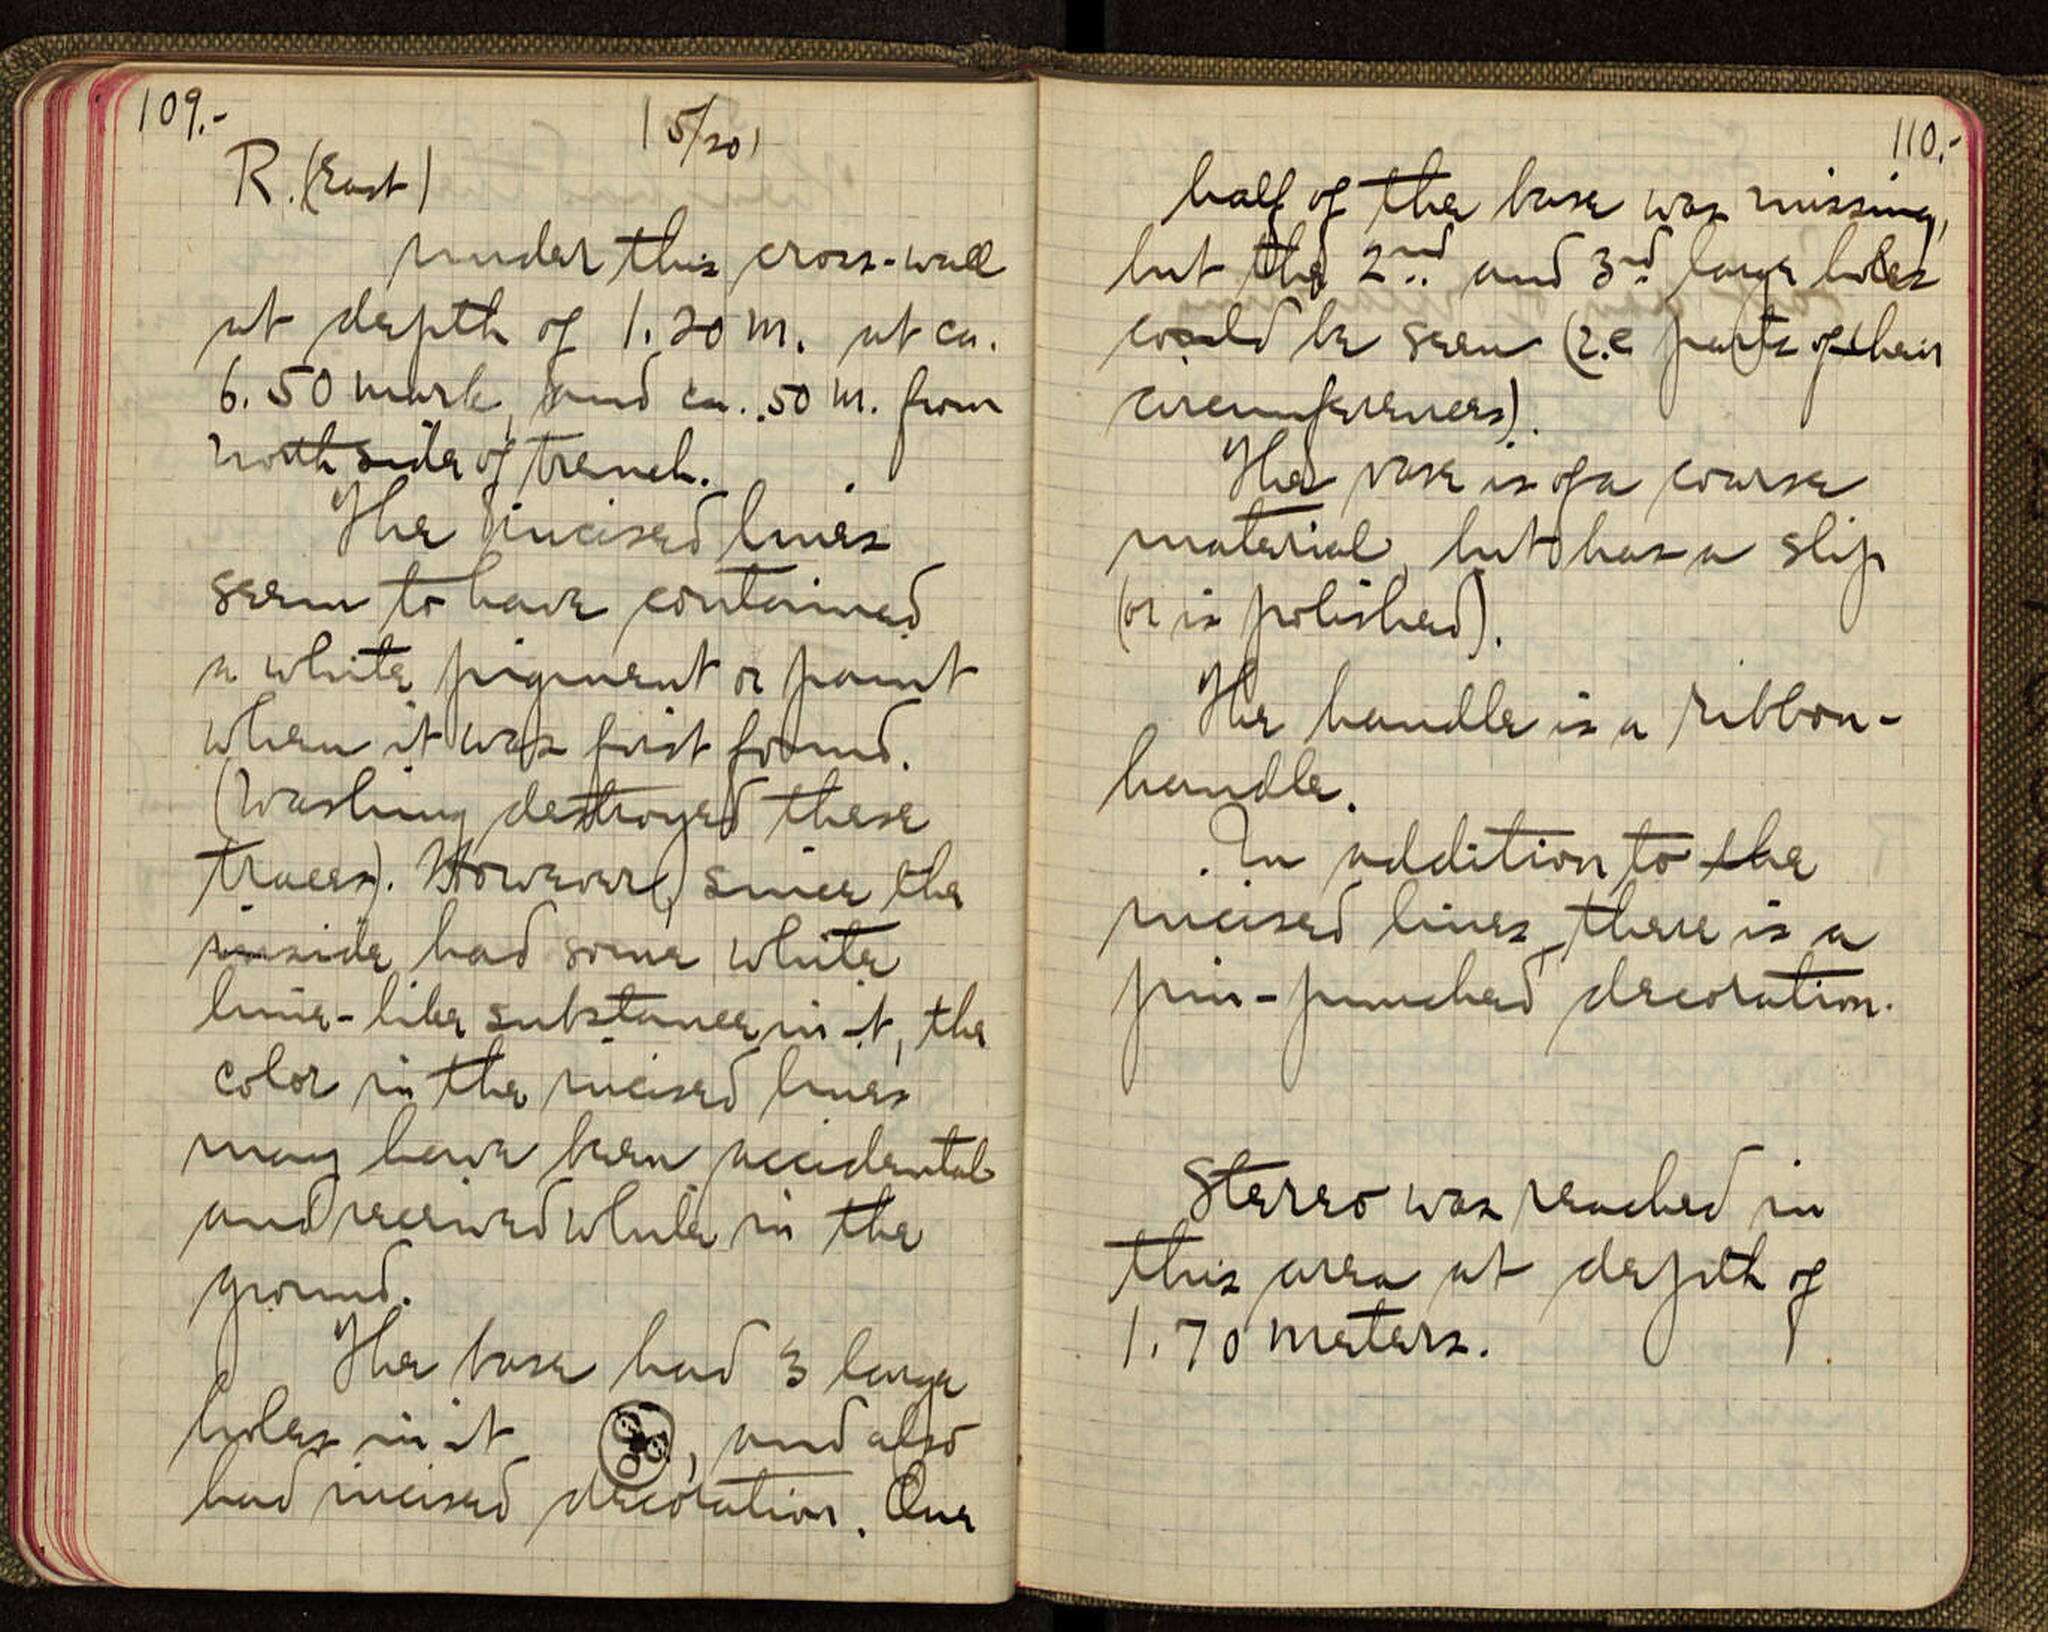 109.-
15/20
R. (East)
under this cross-wall
at depth of 1.20 m. at ca.
6.50 mark, and ca. .50 m. from
north side of trench.
The incised lines
seem to have contained
a white pigment or paint
when it was first found.
(Washing destroyed these
traces). However, since the
inside had some white
lime-like substance in it, the
color in the incised lines
may have been accidental
and received while in the
ground.
The base had 3 large
holes in it , and also
had incised decoration. One
110.-
half of the base was missing,
but the 2nd and 3rd large holes
could be seen (i.e parts of their
circumferences).
The vase is of a coarse
material, but has a slip
(or is polished).
The handle is a ribbon-
handle.
In addition to the
incised lines, there is a
pin-punched decoration.
Stereo was reached in
this area at depth of
1.70 meters.